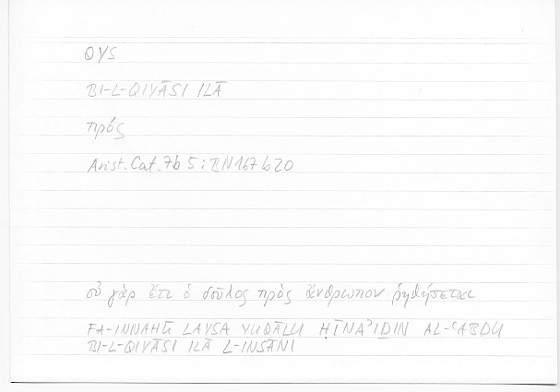 QYS
BI-L-QIYĀSI ILĀ
πρός
Arist. Cat. 7b 5; IṢN 167 b 20
οὐ γὰρ ἔτι ὁ δοῦλος πρὸς ἄνθρωπον ῥηθήσεται
FA-INNAHŪ LAYSA YUQĀLU ḤĪNAʾIḎIN AL-ʿABDU
BI-L-QIYĀSI ILĀ L-INSĀNI